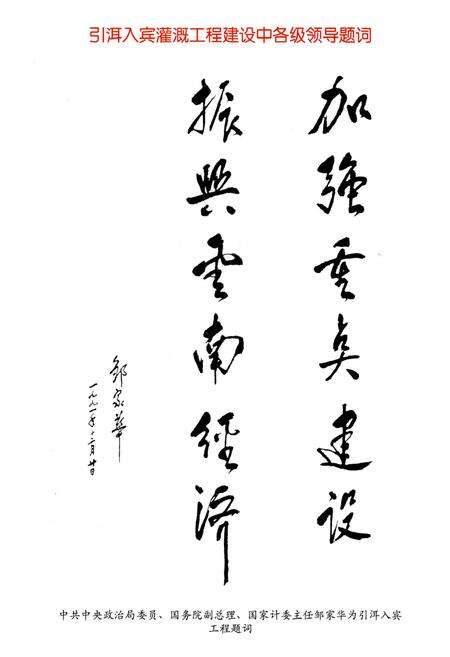 引洱入宾灌溉工程建设中各级领导题词
加強重点建设
振興雲南經济
邹家華
一九九一年十二月廿日
中共中央政治局委员、国务院副总理、国家计委主任邹家华为引洱入宾
工程题词